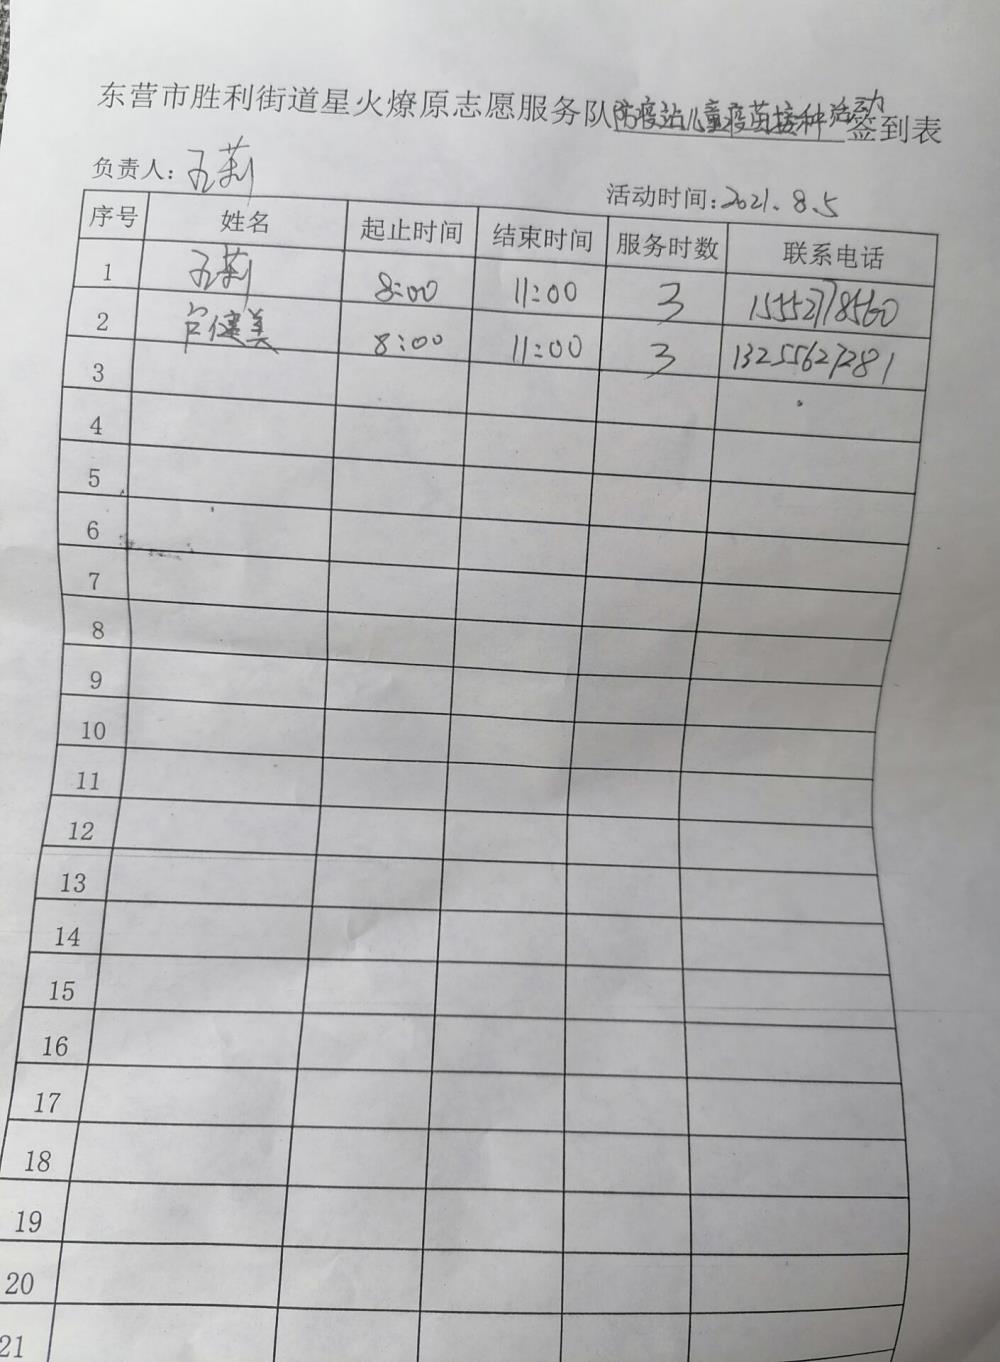 东营市胜利街道星火燎原志愿服务队防疫站儿童疫苗接种活动签到表
负责人：王莉
活动时间：2021.8.5
序号 姓名 起止时间 结束时间 服务时数 联系电话
1 王莉 8:00 11:00 3 15552778560
2 吕健美 8:00 11:00 3 13255627281
3
4
5
6
7
8
9
10
11
12
13
14
15
16
17
18
19
20
21